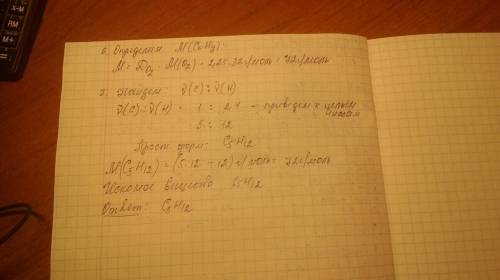 X-M
RM
M+
6. Определяем M(CxHy):
M = DO₂ · M(O₂) = 2,25 · 32 г/моль = 72 г/моль
7. Находим: ν(C) : ν(H)
ν(C) : ν(H) = 1 : 2,4 – приводим к целым
числам
5 : 12
Прост. форм: C₅H₁₂
M(C₅H₁₂) = (5·12 + 12) г/моль = 72 г/моль
Искомое вещество C₅H₁₂
Ответ: C₅H₁₂